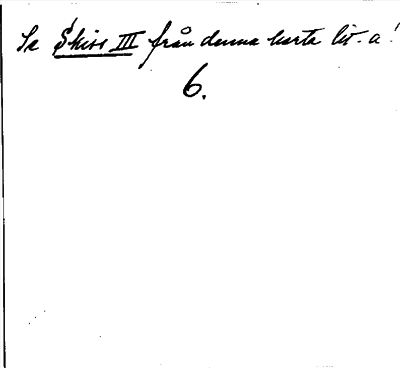 Se Skiss III från denna karta lit. a!
6.